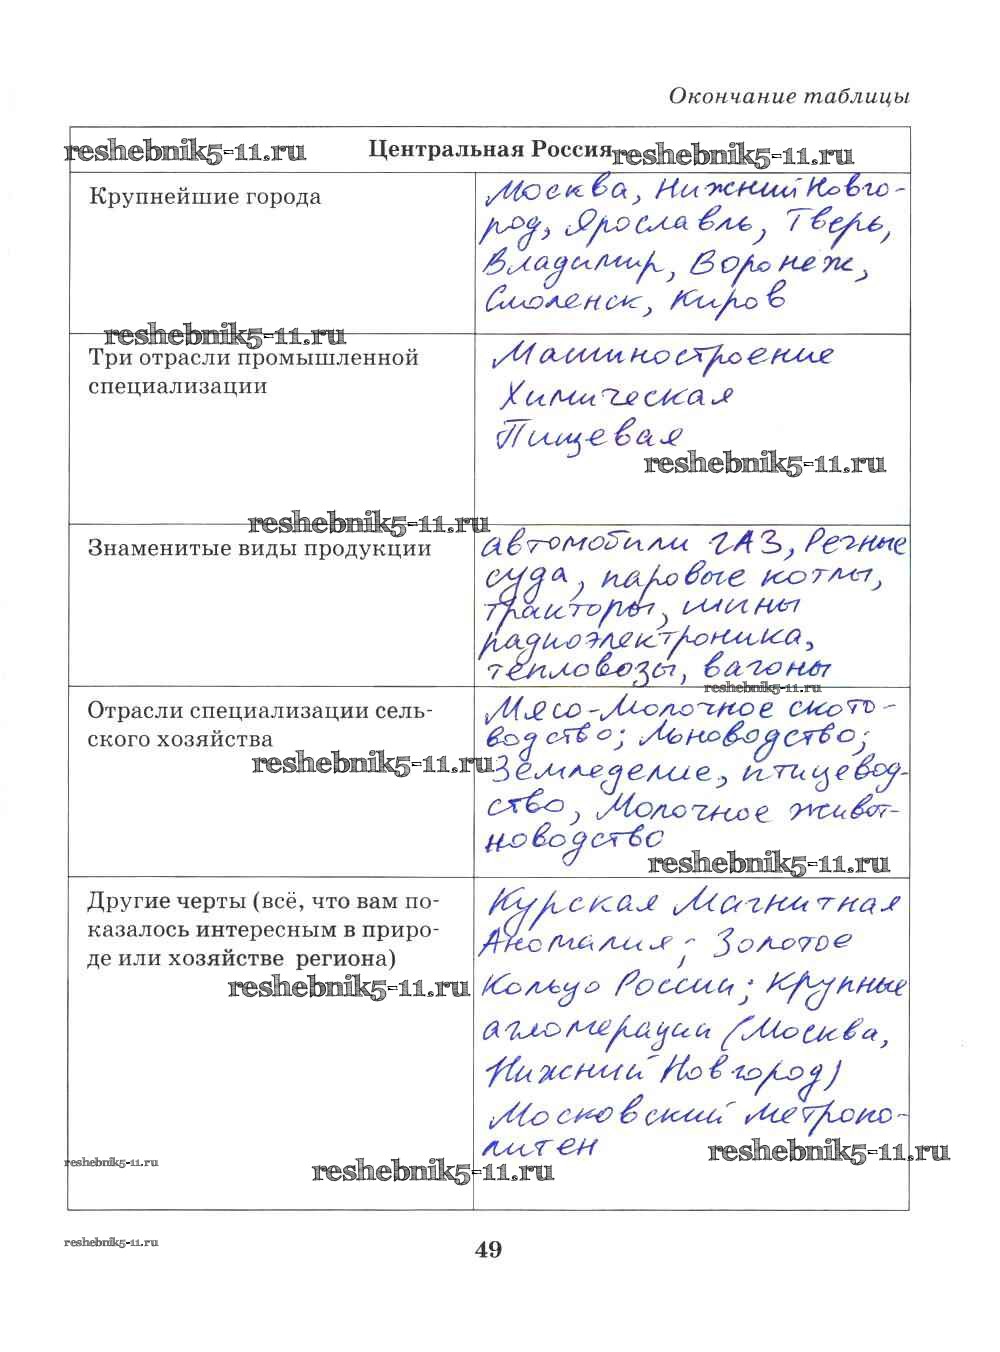 Окончание таблицы
reshebnik5-11.ru Центральная Россия reshebnik5-11.ru
Крупнейшие города
Москва, Нижний Новго-
род, Ярославль, Тверь,
Владимир, Воронеж,
Смоленск, Киров
reshebnik5-11.ru
Три отрасли промышленной
специализации
Машиностроение
Химическая
Пищевая
reshebnik5-11.ru
reshebnik5-11.ru
Знаменитые виды продукции
автомобили ГАЗ, Речные
суда, паровые котлы,
тракторы, шины
радиоэлектроника,
тепловозы, вагоны
reshebnik5-11.ru
Отрасли специализации сель-
ского хозяйства
reshebnik5-11.ru
Мясо-Молочное ското-
водство; Льноводство;
Земледелие, птицевод-
ство, Молочное живот-
новодство
reshebnik5-11.ru
Другие черты (всё, что вам по-
казалось интересным в приро-
де или хозяйстве региона)
reshebnik5-11.ru
Курская Магнитная
Аномалия; Золотое
Кольцо России; Крупные
агломерации (Москва,
Нижний Новгород)
Московский метропо-
литен
reshebnik5-11.ru
reshebnik5-11.ru
reshebnik5-11.ru
reshebnik5-11.ru
49